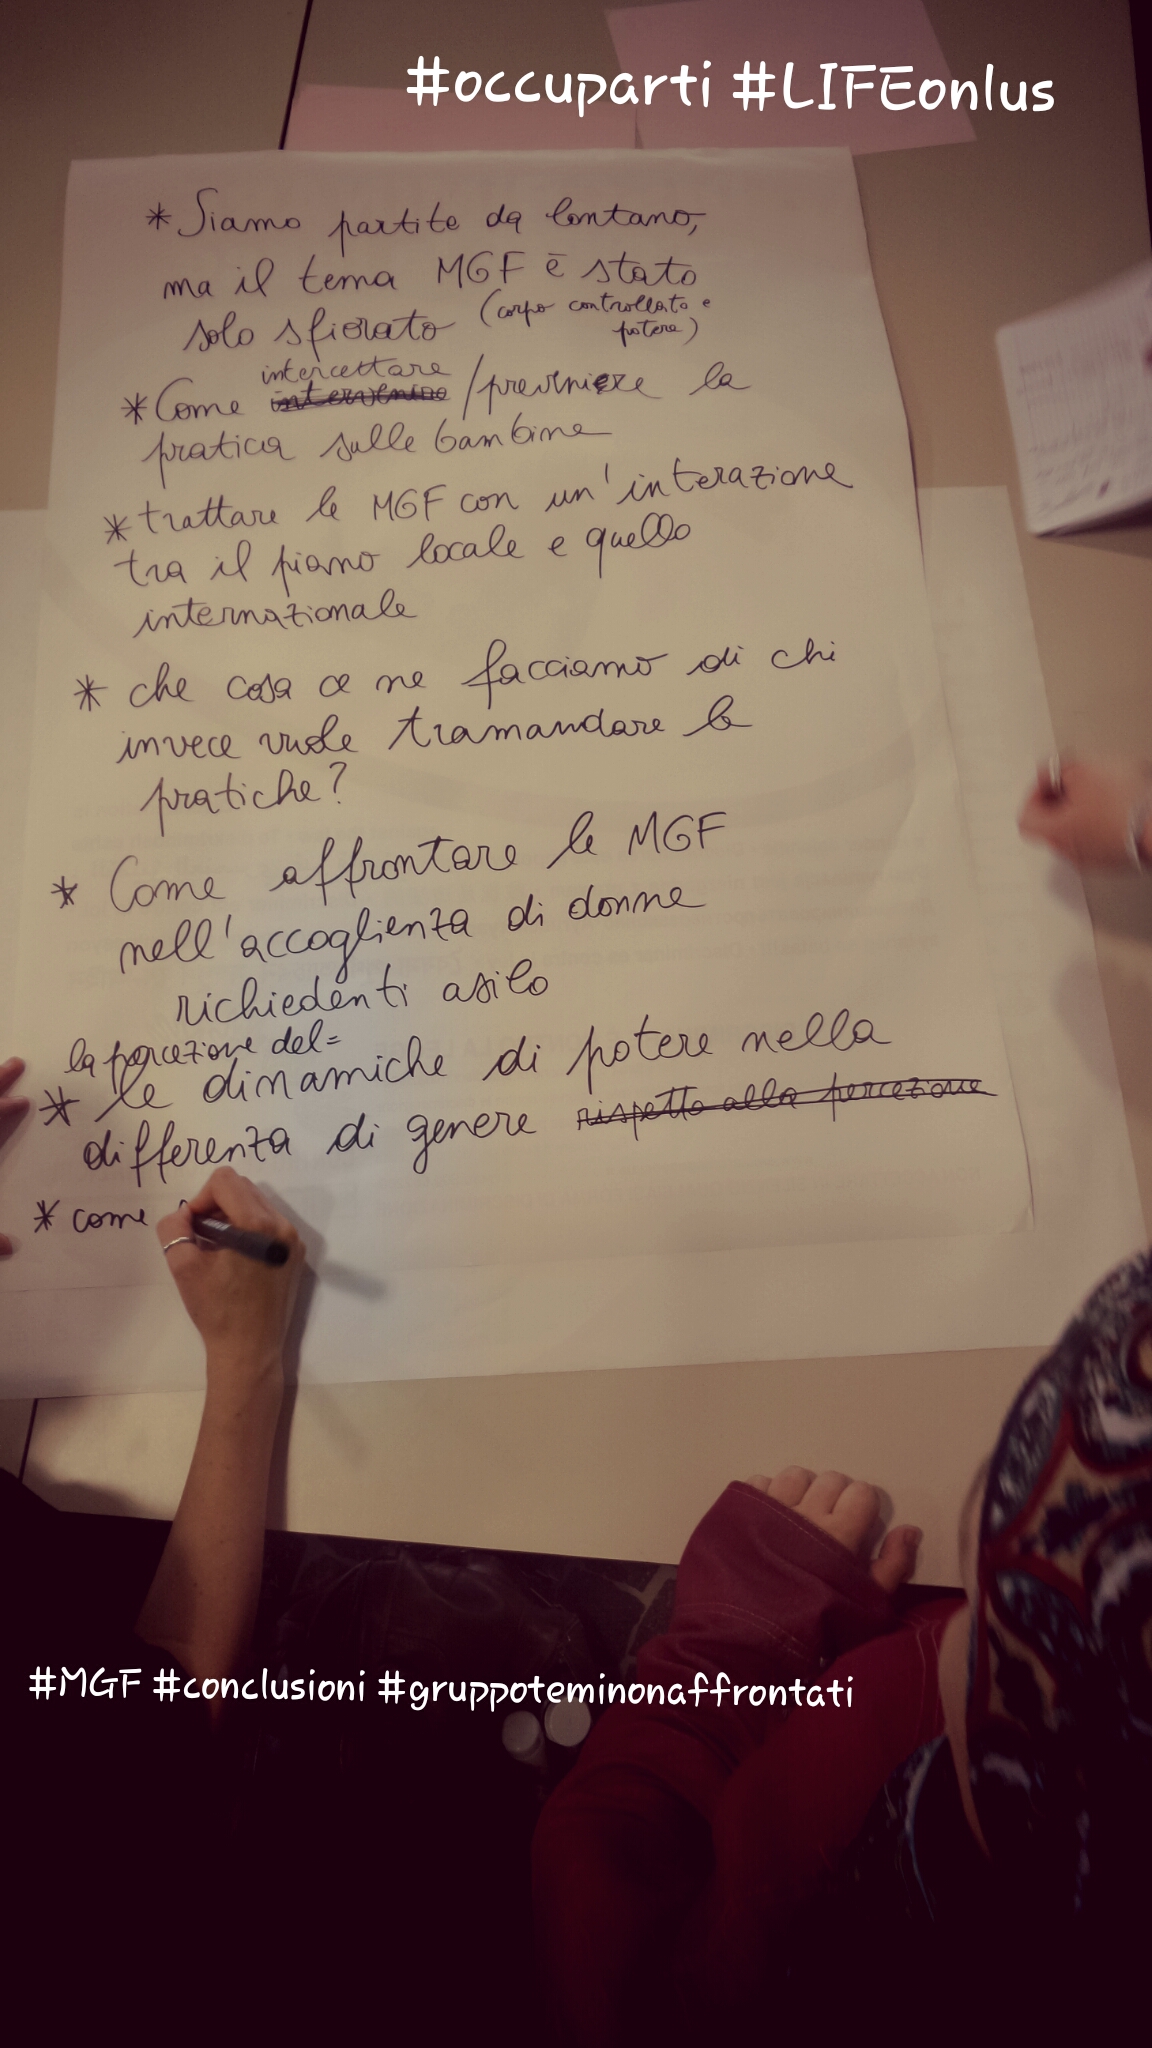 #occuparti #LIFEonlus
* Siamo partite da lontano,
ma il tema MGF è stato
solo sfiorato (corpo controllato e
potere)
intercettare
* Come intervenire /previniere la
pratica sulle bambine
* trattare le MGF con un'interazione
tra il piano locale e quello
internazionale
* che cosa ce ne facciamo di chi
invece vuole tramandare le
pratiche?
* Come affrontare le MGF
nell'accoglienza di donne
richiedenti asilo
la percezione del=
* le dinamiche di potere nella
differenza di genere rispetto alla percezione
* come
#MGF #conclusioni #gruppoteminonaffrontati